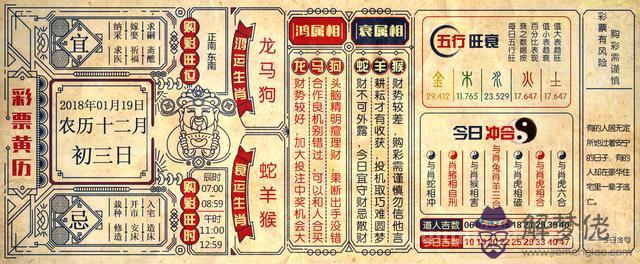 彩票黄历
宜
纳采
求医
嫁娶
祈福
求嗣
斋醮
购彩旺位
正南
东南
2018年01月19日
农历十二月
初三日
忌
栽种
修造
开市
出行
入宅
安床
购彩旺时
辰时
07:00
08:59
午时
11:00
12:59
鸿运生肖
龙马狗
衰运生肖
蛇羊猴
鸿属相
龙马狗
头脑精明擅理财，果断出手没错
合作良机别错过，可以和人合买
财势较好，加大投注中奖机会大
衰属相
蛇羊猴
财势较差，购彩需谨慎勿信他言
耕耘才有收获，投机取巧难圆梦
财不可外露，今日宜守财忌散财
五行旺衰
值大表趋旺
值小表趋衰
百分比表现
之旺衰数据
每日五行按
金
木
水
火
土
29.412
11.765
23.529
17.647
17.647
今日冲合
与肖蛇相冲
肖猪相自刑
与肖猴相害
与肖兔肖羊三合
与肖虎相合
与肖虎六合
道人吉数
今日吉数
10
购彩需谨慎
彩票有风险
有的人居无定
所地过着安宁
的日子，有的
人却在豪华住
宅里一辈子逃
亡。
今日金句
解梦佬
www.jiemenglao.com